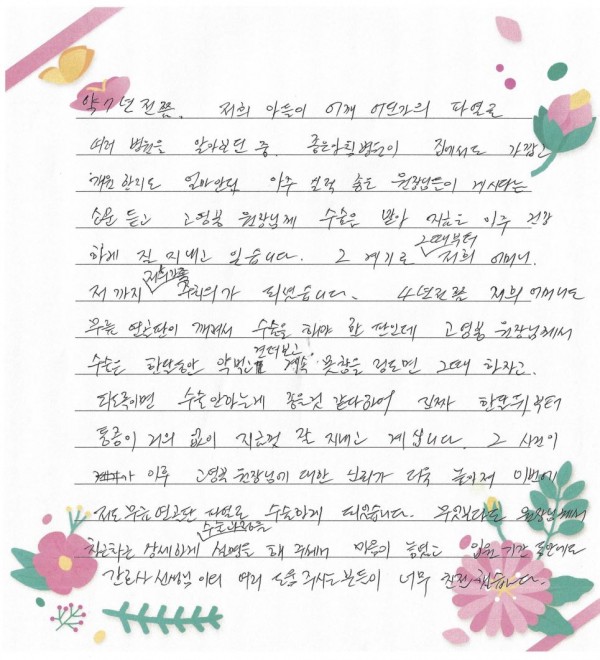 약 7년 전쯤. 저희 아들이 어깨 어딘가의 파열로
여러 병원을 알아보던 중. 좋은아침병원이 집에서도 가깝고
개원한지도 얼마안된 아주 실력 좋은 원장님들이 계시다는
소문 듣고 고영봉 원장님께 수술을 받아 지금도 아주 건강
하게 잘 지내고 있습니다. 그 계기로 그때부터 저희 어머니.
저 까지 저희가족 주치의가 되셨습니다. 4년전쯤 저희 어머니도
무릎 연골판이 깨져서 수술을 해야 한 판인데 고영봉 원장님께서
수술은 한달동안 약먹고 견뎌보고. 계속 못참을 정도면 그때 하자고.
되도록이면 수술안하는게 좋을것 같다하여 진짜 한달뒤부터
통증이 거의 없이 지금껏 잘 지내고 계십니다. 그 사건이
이후 고영봉 원장님에 대한 신뢰가 더욱 높아져 이번에
저도 무릎 연골판 파열로 수술하게 되었습니다. 무엇보다도 원장님께서
친근하고 상세하게 수술과정을 설명을 해 주셔서 마음이 놓였고 입원 기간 동안에도
간호사 선생님 이하 여러 도움 주시는 분들이 너무 친절했습니다.